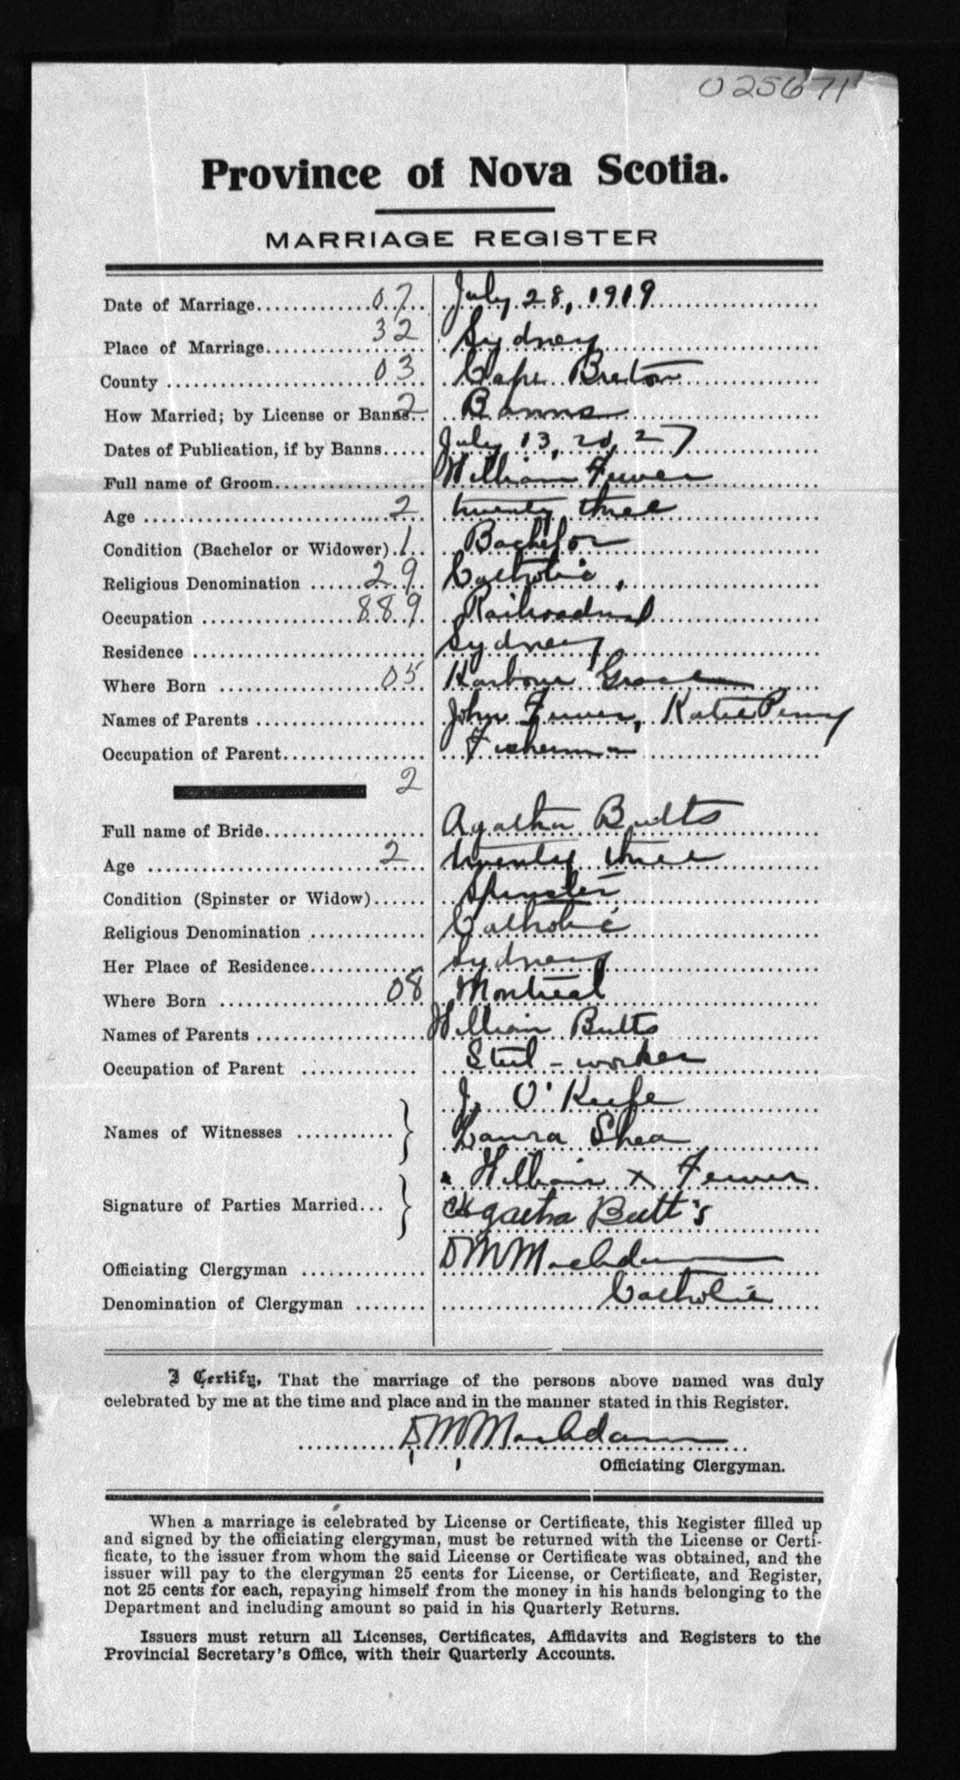 025671
Province of Nova Scotia.
MARRIAGE REGISTER
Date of Marriage 07 July 28, 1919
Place of Marriage 32 Sydney
County 03 Cape Breton
How Married; by License or Banns 2 Banns
Dates of Publication, if by Banns July 13, 20, 27
Full name of Groom William Fewer
Age 2 twenty three
Condition (Bachelor or Widower) 1 Bachelor
Religious Denomination 29 Catholic
Occupation 889
Residence Sydney
Where Born 05 Harbour Grace
Names of Parents John Fewer, Katie Penny
Occupation of Parent Fisherman
2
Full name of Bride Agatha Butts
Age 2 twenty three
Condition (Spinster or Widow) Spinster
Religious Denomination Catholic
Her Place of Residence Sydney
Where Born 08 Montreal
Names of Parents William Butts
Occupation of Parent Steel-worker
J. O'Keefe
Names of Witnesses Laura Shea
William x Fewer
Signature of Parties Married Agatha Butt's
Officiating Clergyman D M MacAdam
Denomination of Clergyman Catholic
I Certify, That the marriage of the persons above named was duly
celebrated by me at the time and place and in the manner stated in this Register.
D M MacAdam
Officiating Clergyman.
When a marriage is celebrated by License or Certificate, this Register filled up
and signed by the officiating clergyman, must be returned with the License or Certi-
ficate, to the issuer from whom the said License or Certificate was obtained, and the
issuer will pay to the clergyman 25 cents for License, or Certificate, and Register,
not 25 cents for each, repaying himself from the money in his hands belonging to the
Department and including amount so paid in his Quarterly Returns.
Issuers must return all Licenses, Certificates, Affidavits and Registers to the
Provincial Secretary's Office, with their Quarterly Accounts.